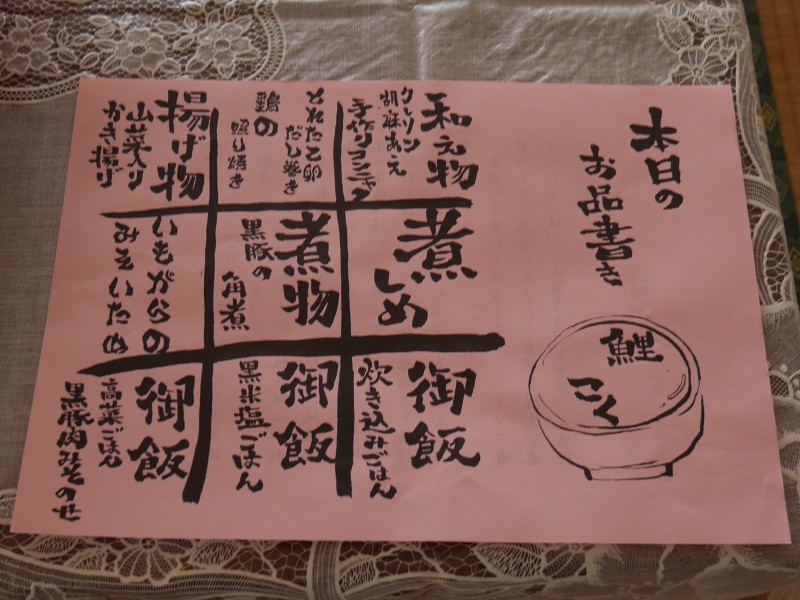 本日の
お品書き
鯉
こく
和え物
クレソン
胡麻あえ
手作りコンニャク
とれたて卵
だし巻き
鶏の
照り焼き
揚げ物
山菜入り
かき揚げ
煮
しめ
煮物
黒豚の
角煮
いもがらの
みそいため
御飯
炊き込みごはん
御飯
黒米塩ごはん
御飯
高菜ごはん
黒豚肉みそのせ